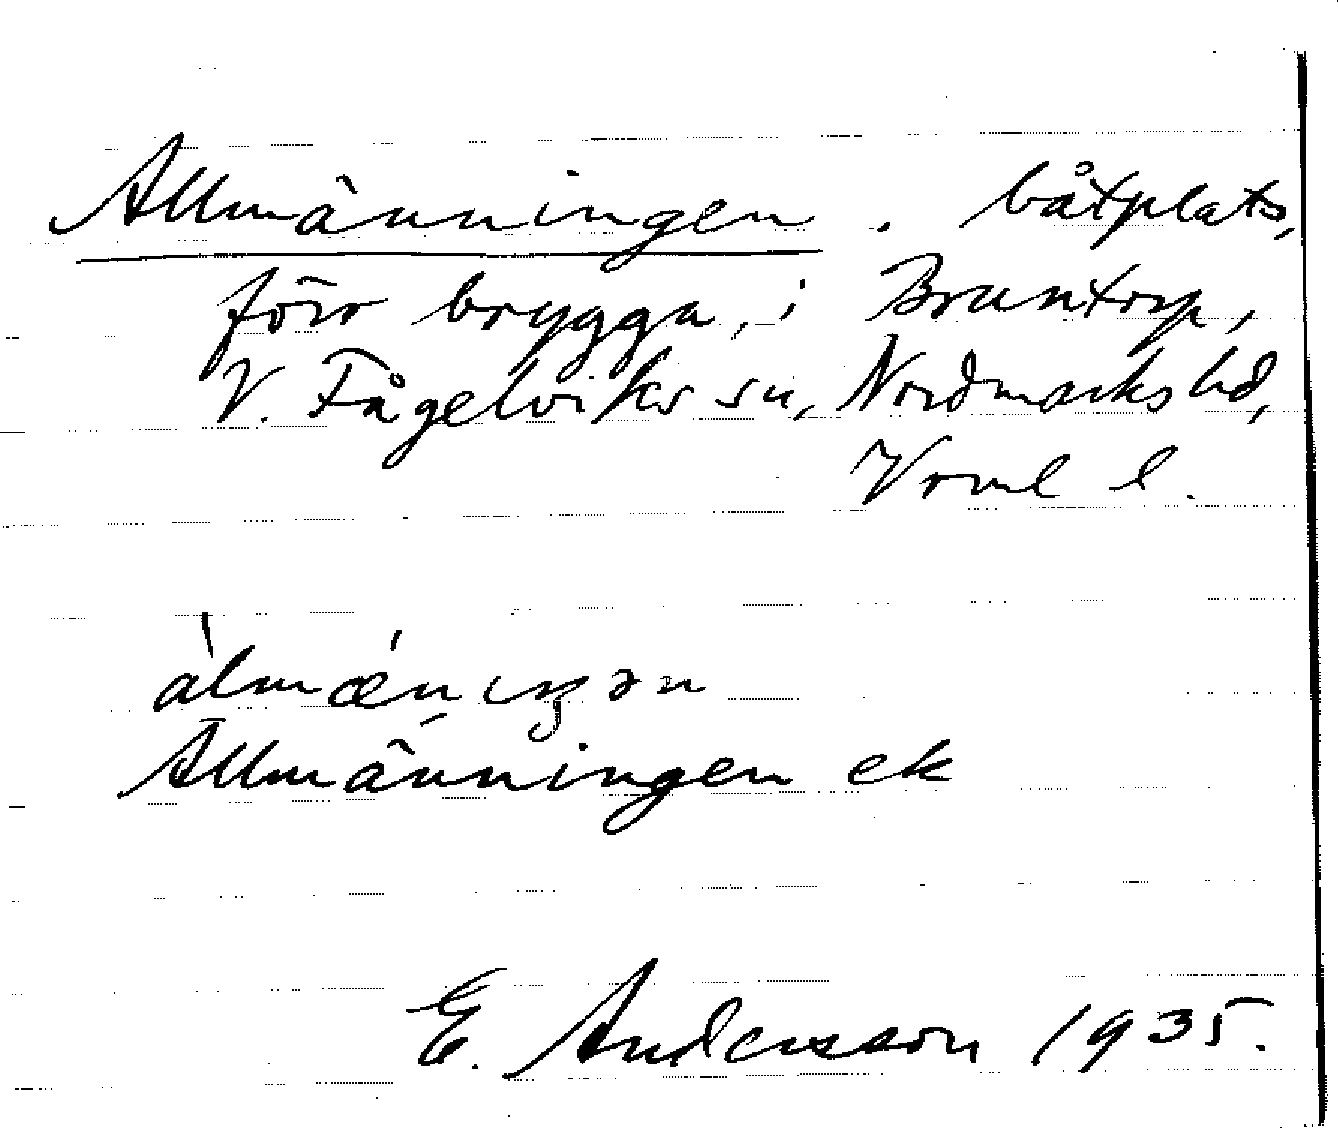 Allmänningen . båtplats,
förr brygga, i Bruntorp,
V. Fågelviks sn, Nordmarks hd,
Vrml l.
Allmänningen ek
E. Andersson 1935.